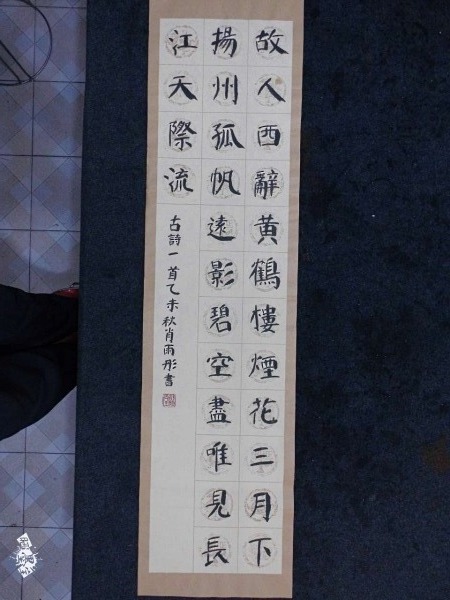 故人西辭黃鶴樓煙花三月下
揚州孤帆遠影碧空盡唯見長
江天際流
古詩一首乙未秋肖雨彤書